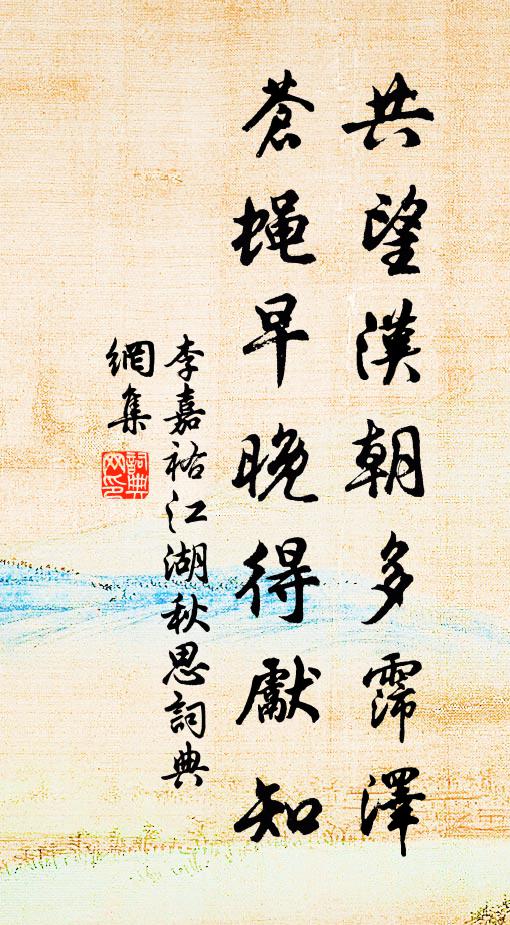 共望漢朝多霈澤
蒼蝇早晚得獻知
李嘉祐江湖秋思詞典
網集
詞典网印